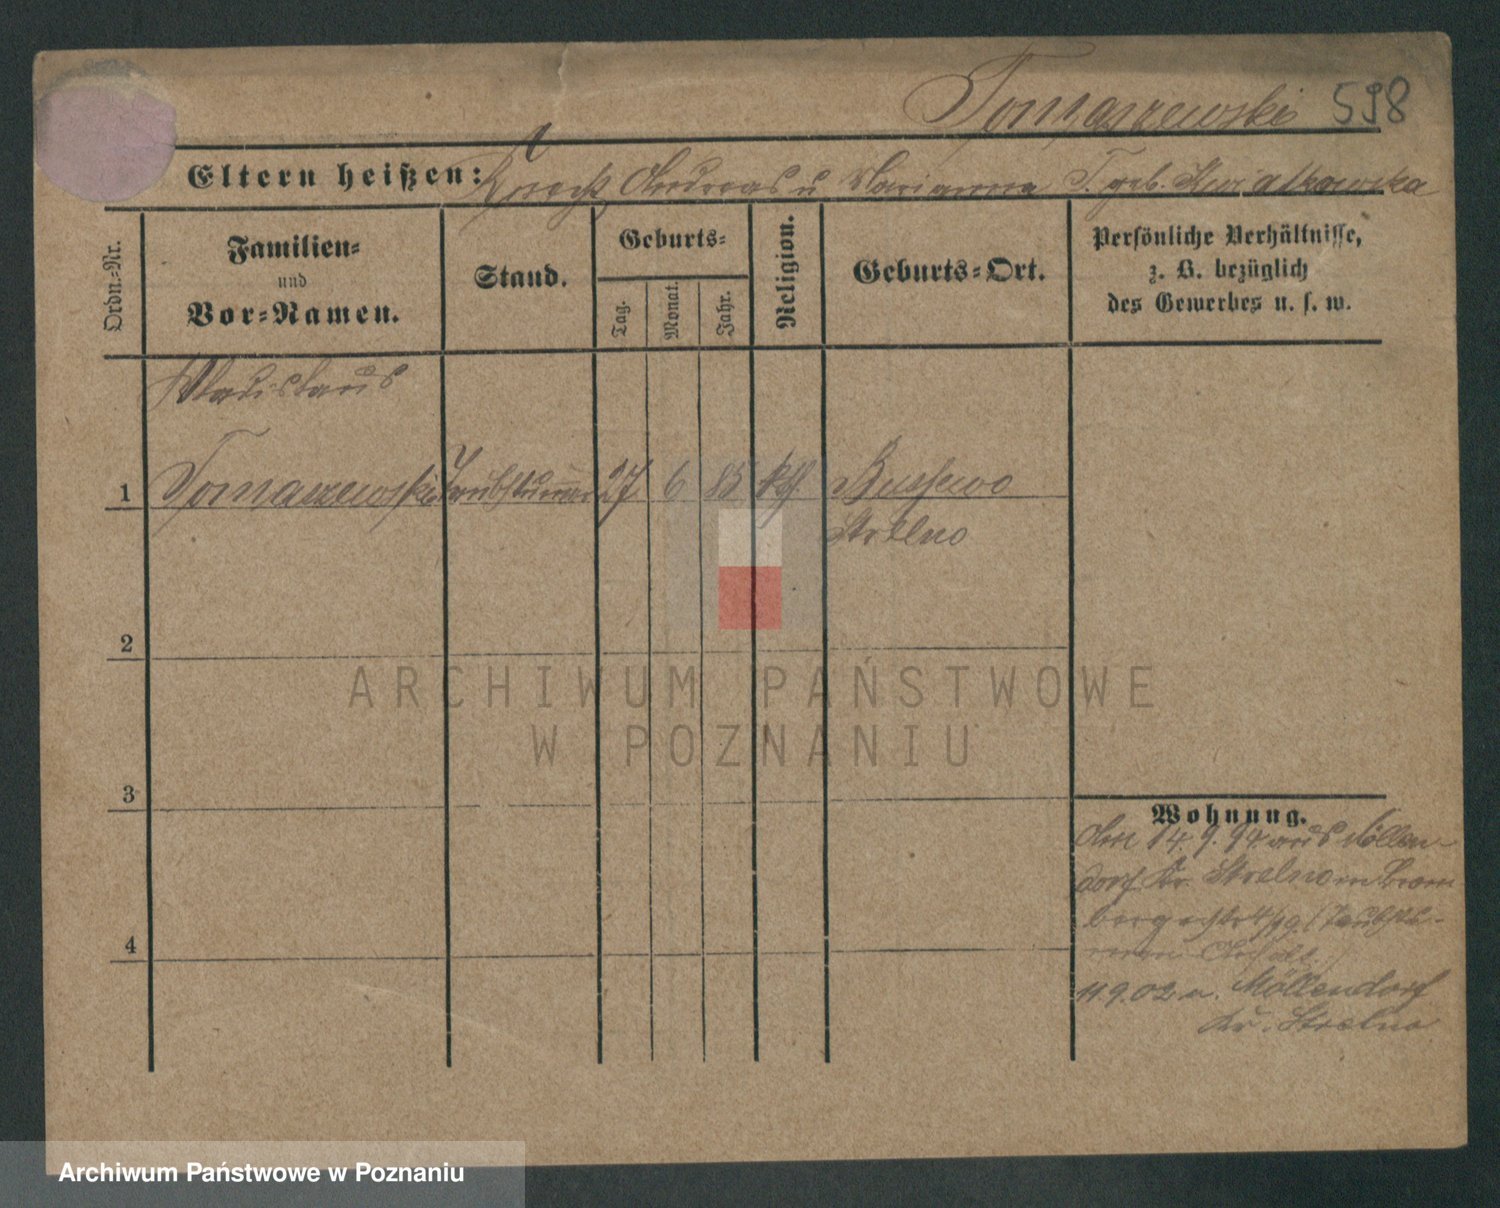 Tomaszewski 598
Eltern heißen: Knecht Andreas u Marianna T. geb. Kwiatkowska
Ordn.-Nr.
Familien-
und
Vor-Namen.
Stand.
Geburts-
Tag.
Monat.
Jahr.
Religion.
Geburts-Ort.
Persönliche Verhältnisse,
z. B. bezüglich
des Gewerbes u. s. w.
Wladislaus
1 Tomaszewski Taubstummer 27 6 85 kth
Strelno
2
ARCHIWUM PAŃSTWOWE
W POZNANIU
3
Wohnung.
14. 9. 94 aus Möllen-
dorf Kr. Strelno Brom
berg
4
11.9.02 n. Möllendorf
Kr. Strelno
Archiwum Państwowe w Poznaniu